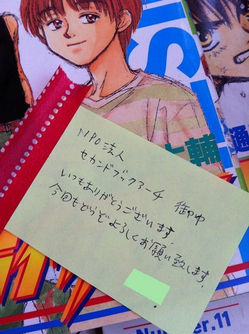 IST
大輔
NPO法人
セカンドブックアーチ 御中
いつもありがとうございます。
今回もどうぞよろしくお願い致します。
Number.11